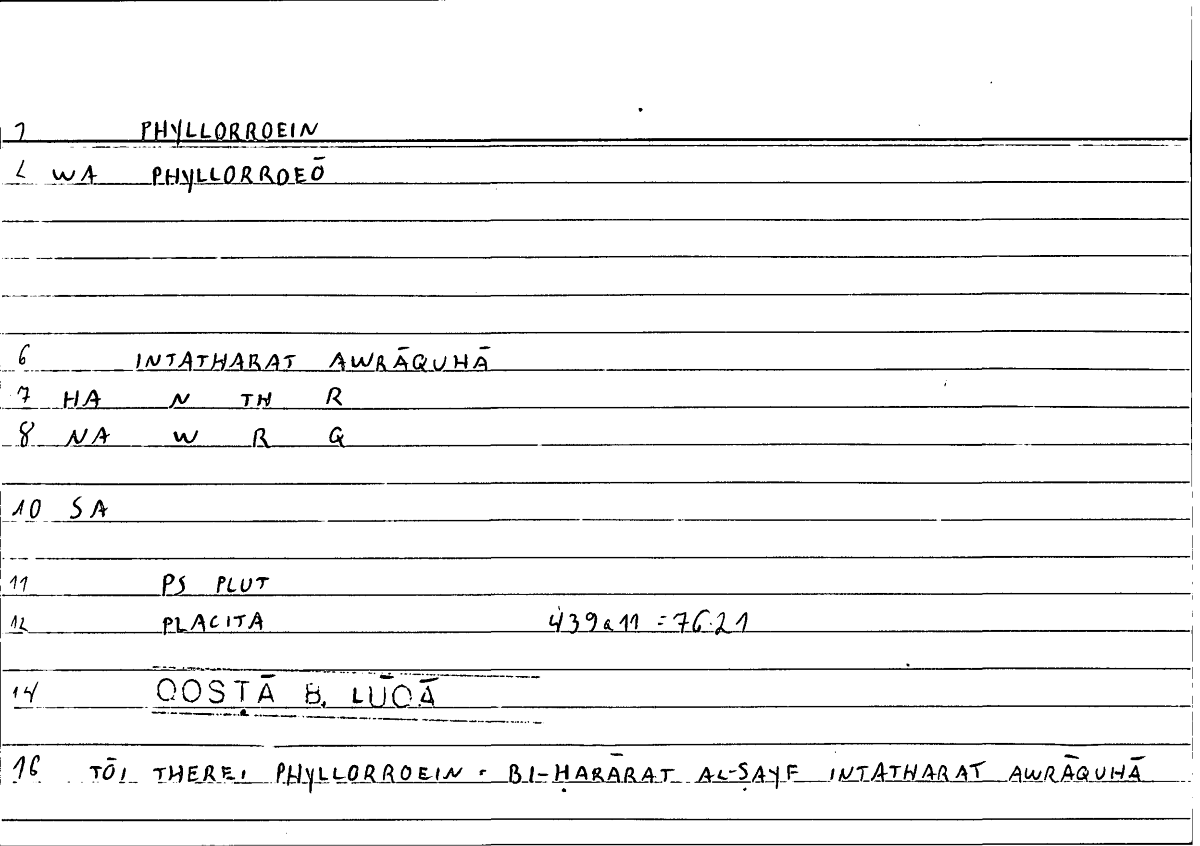 1 PHYLLORROEIN
2 WA PHYLLORROEŌ
6 INTATHARAT AWRĀQUHĀ
7 HA N TH R
8 NA W R Q
10 SA
11 PS PLUT
12 PLACITA 439a11 = 76.21
14 QOSṬĀ B. LŪQĀ
16 TŌI THEREI PHYLLORROEIN · BI-ḤARĀRAT AL-ṢAYF INTATHARAT AWRĀQUHĀ